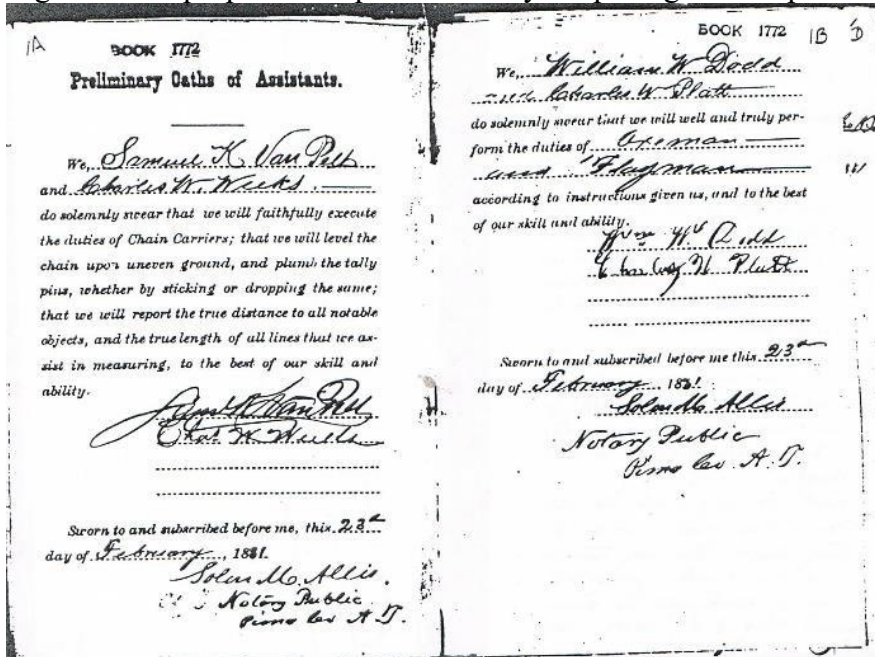 1A
BOOK 1772
Preliminary Oaths of Assistants.
We, Samuel K. Van Pelt
and Charles W. Weeks.
do solemnly swear that we will faithfully execute
the duties of Chain Carriers; that we will level the
chain upon uneven ground, and plumb the tally
pins, whether by sticking or dropping the same;
that we will report the true distance to all notable
objects, and the true length of all lines that we as-
sist in measuring, to the best of our skill and
ability.
Saml K Van Pelt
Chas W. Weeks
Sworn to and subscribed before me, this 23d
day of February, 1881.
Solon M. Allis.
Notary Public
Pima Co A T.
BOOK 1772 1B
We, William W Dodd
and Charles W Platt
do solemnly swear that we will well and truly per-
form the duties of Axeman
and Flagman
according to instructions given us, and to the best
of our skill and ability.
Wm W Dodd
Charles W Platt
Sworn to and subscribed before me this 23d
day of February, 1881.
Solon M Allis
Notary Public
Pima Co. A. T.